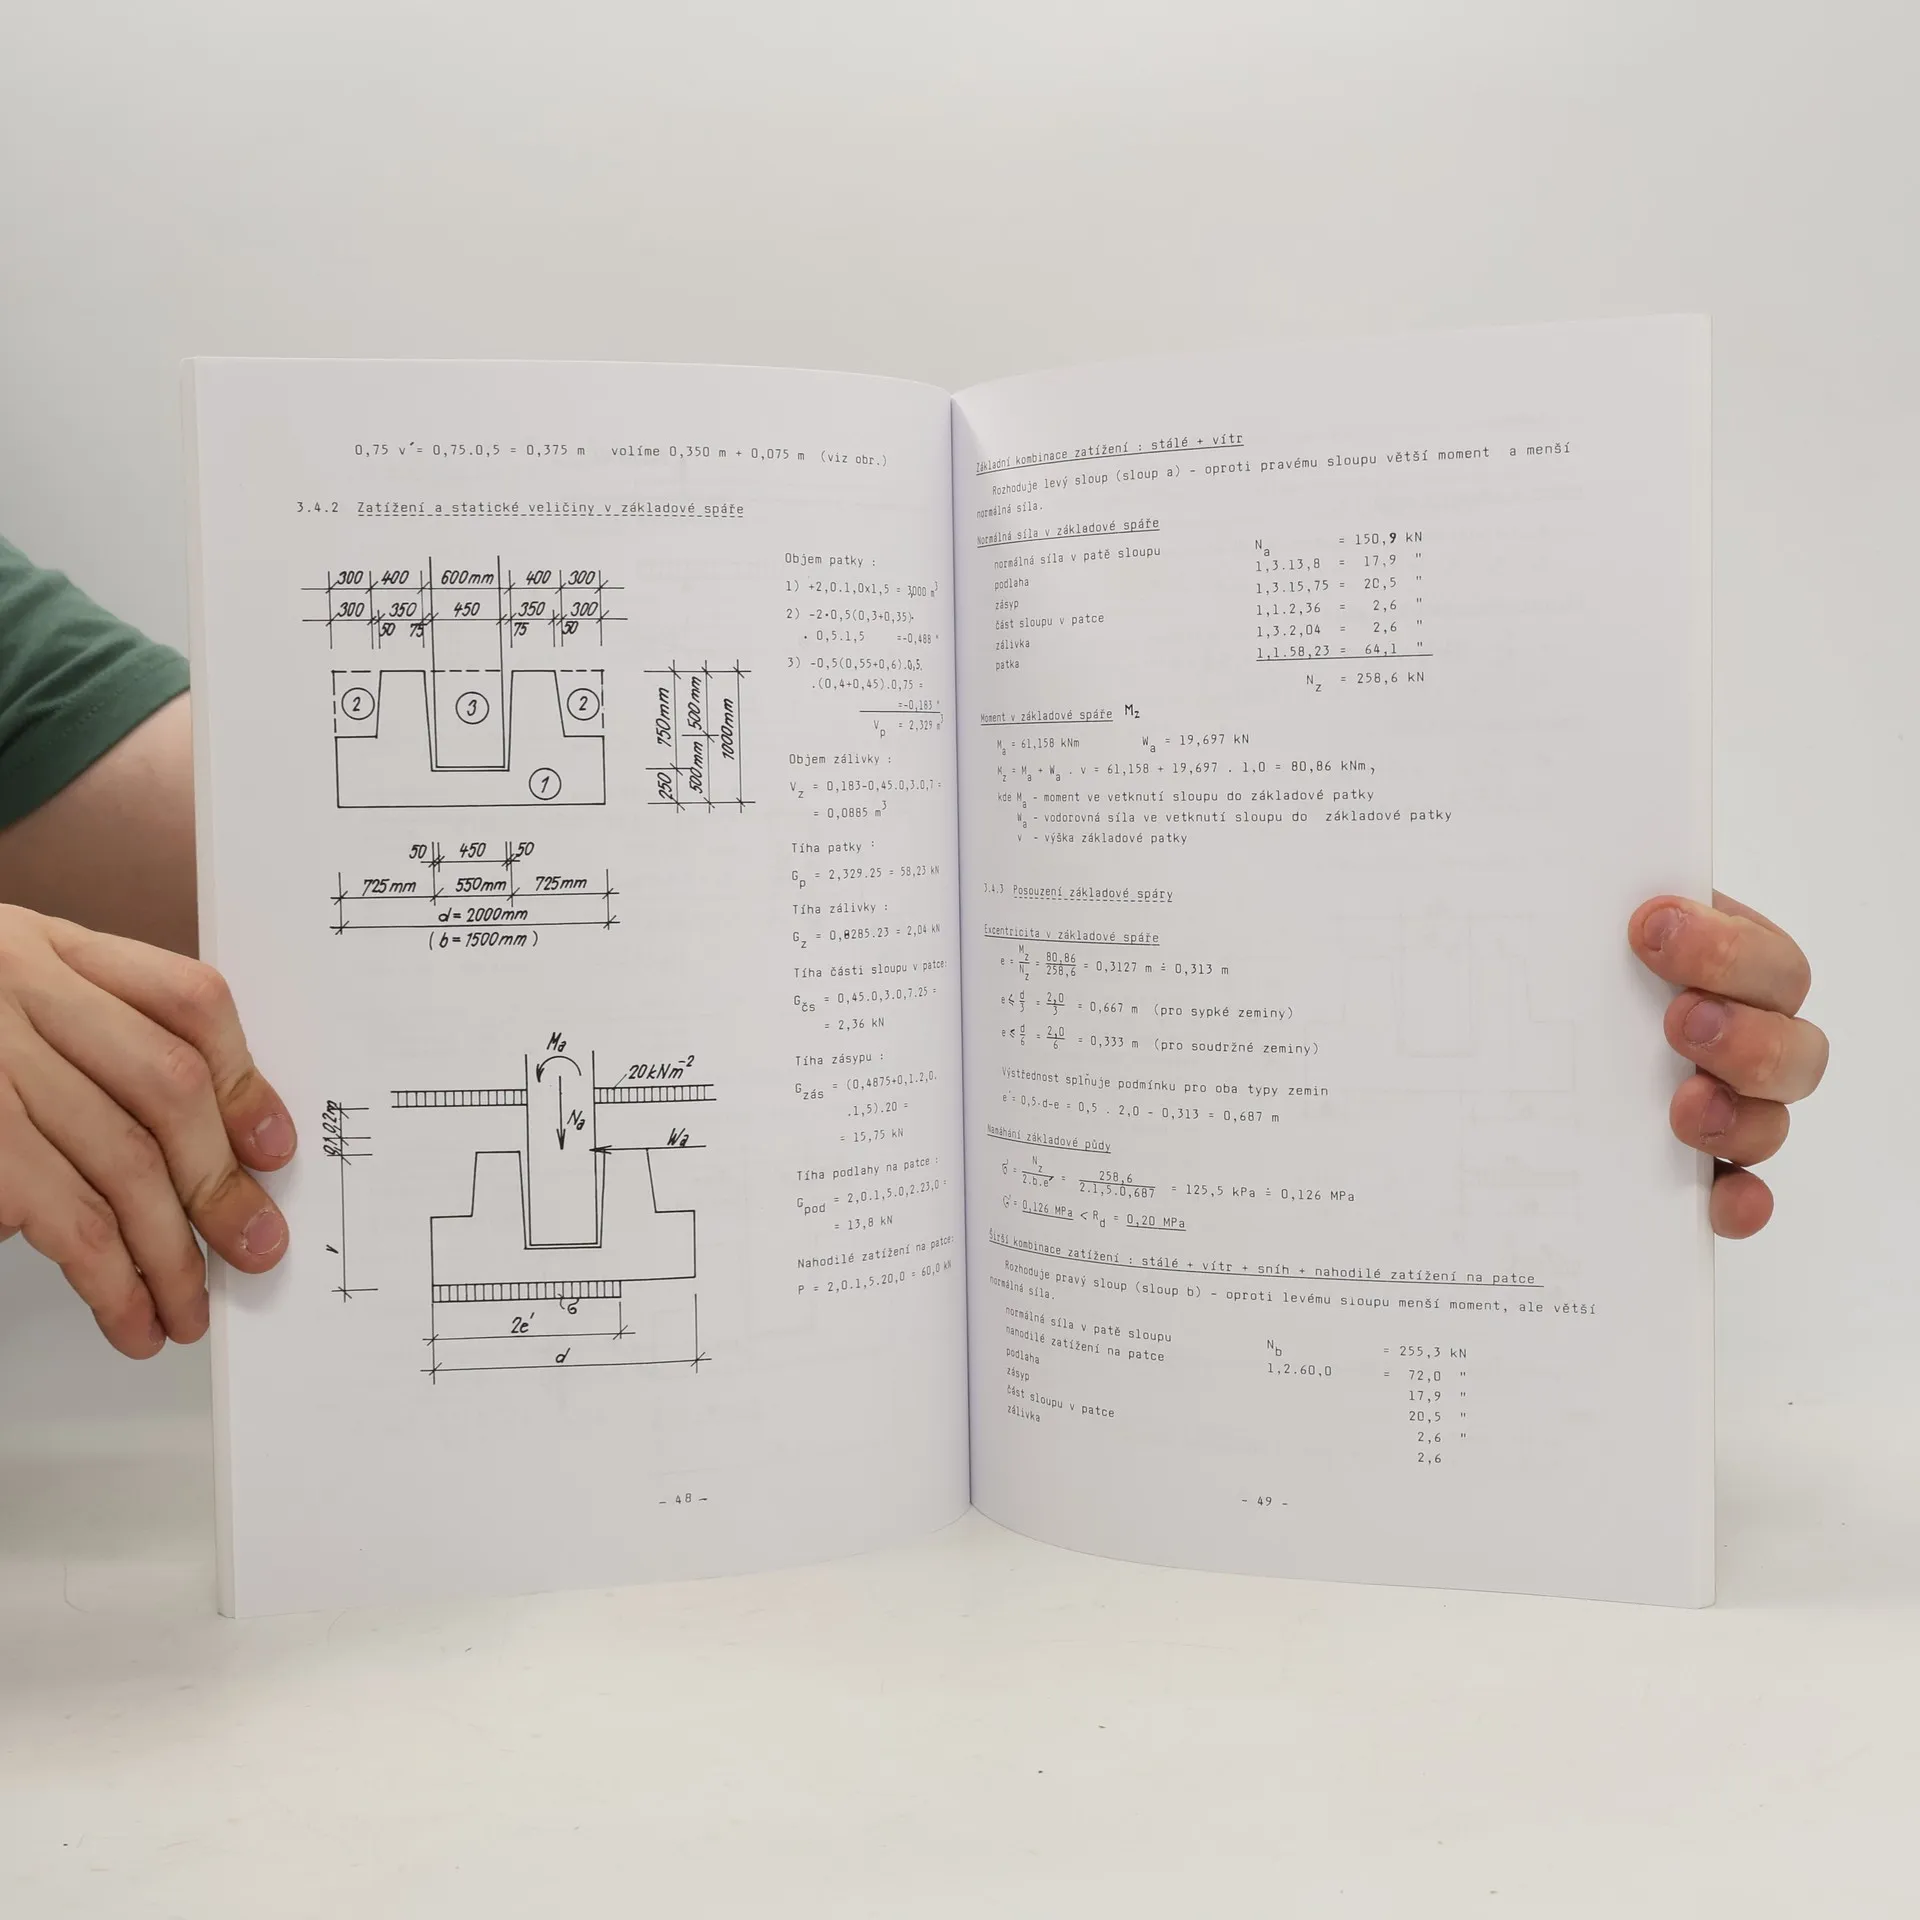 0,75 v´= 0,75.0,5 = 0,375 m volíme 0,350 m + 0,075 m (viz obr.)
3.4.2 Zatížení a statické veličiny v základové spáře
300 400 600mm 400 300
300 350 450 350 300
50 75 75 50
2 3 2
1
750mm 500mm 1000mm
250 500mm
50 450 50
725mm 550mm 725mm
d=2000mm
(b=1500mm)
Ma
20kNm-2
Na
Wa
v
σ
2e'
d
Objem patky :
1) +2,0.1,0x1,5 = 3,000 m3
2) -2.0,5(0,3+0,35).
. 0,5.1,5 =-0,488 "
3) -0,5(0,55+0,6).0,5.
.(0,4+0,45).0,75 =
=-0,183 "
Vp = 2,329 m3
Objem zálivky :
Vz = 0,183-0,45.0,3.0,7 =
= 0,0885 m3
Tíha patky :
Gp = 2,329.25 = 58,23 kN
Tíha zálivky :
Gz = 0,0285.23 = 2,04 kN
Tíha části sloupu v patce:
Gčs = 0,45.0,3.0,7.25 =
= 2,36 kN
Tíha zásypu :
Gzás = (0,4875+0,1.2,0.
.1,5).20 =
= 15,75 kN
Tíha podlahy na patce :
Gpod = 2,0.1,5.0,2.23,0 =
= 13,8 kN
Nahodilé zatížení na patce:
P = 2,0.1,5.20,0 = 60,0 kN
- 48 -
Základní kombinace zatížení : stálé + vítr
Rozhoduje levý sloup (sloup a) - oproti pravému sloupu větší moment a menší
normálná síla.
Normálná síla v základové spáře
normálná síla v patě sloupu Na = 150,9 kN
podlaha 1,3.13,8 = 17,9 "
zásyp 1,3.15,75 = 20,5 "
část sloupu v patce 1,1.2,36 = 2,6 "
zálivka 1,3.2,04 = 2,6 "
patka 1,1.58,23 = 64,1 "
Nz = 258,6 kN
Moment v základové spáře Mz
Ma = 61,158 kNm Wa = 19,697 kN
Mz = Ma + Wa . v = 61,158 + 19,697 . 1,0 = 80,86 kNm,
kde Ma - moment ve vetknutí sloupu do základové patky
Wa - vodorovná síla ve vetknutí sloupu do základové patky
v - výška základové patky
3.4.3 Posouzení základové spáry
Excentricita v základové spáře
e = Mz/Nz = 80,86/258,6 = 0,3127 m ≐ 0,313 m
e ≤ d/3 = 2,0/3 = 0,667 m (pro sypké zeminy)
e ≤ d/6 = 2,0/6 = 0,333 m (pro soudržné zeminy)
Výstřednost splňuje podmínku pro oba typy zemin
e´= 0,5.d-e = 0,5 . 2,0 - 0,313 = 0,687 m
Namáhání základové půdy
σ = Nz/2.b.e´ = 258,6/2.1,5.0,687 = 125,5 kPa ≐ 0,126 MPa
σ = 0,126 MPa < Rd = 0,20 MPa
Širší kombinace zatížení : stálé + vítr + sníh + nahodilé zatížení na patce
Rozhoduje pravý sloup (sloup b) - oproti levému sloupu menší moment, ale větší
normálná síla.
normálná síla v patě sloupu Nb = 255,3 kN
nahodilé zatížení na patce 1,2.60,0 = 72,0 "
podlaha 17,9 "
zásyp 20,5 "
část sloupu v patce 2,6 "
zálivka 2,6
- 49 -